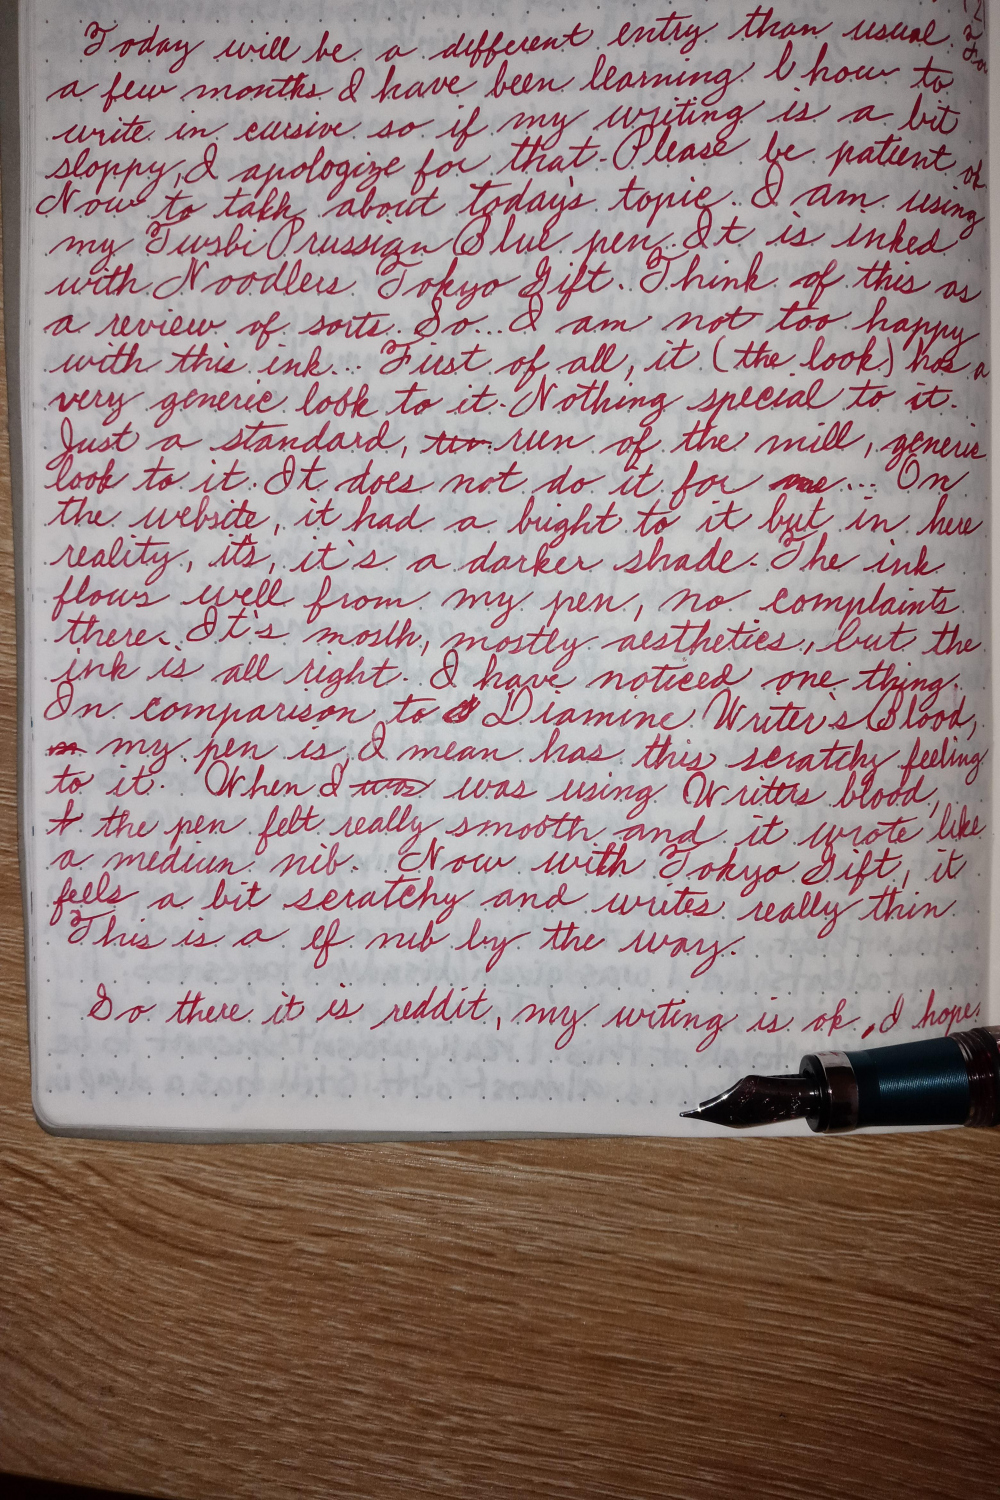 Today will be a different entry than usual. For
a few months I have been learning how to
write in cursive so if my writing is a bit
sloppy, I apologize for that. Please be patient ok
Now to talk about today's topic. I am using
my Twsbi Prussian Blue pen. It is inked
with Noodlers Tokyo Gift. Think of this as
a review of sorts. So... I am not too happy
with this ink... First of all, it (the look) has a
very generic look to it. Nothing special to it.
Just a standard, run of the mill, generic
look to it. It does not do it for me... On
the website, it had a bright to it but in here
reality, its, it's a darker shade. The ink
flows well from my pen, no complaints
there. It's mostly, mostly aesthetics, but the
ink is all right. I have noticed one thing.
In comparison to Diamine Writer's Blood,
my pen is, I mean has this scratchy feeling
to it. When I was was using Writers blood,
the pen felt really smooth and it wrote like
a medium nib. Now with Tokyo Gift, it
feels a bit scratchy and writes really thin
This is a ef nib by the way.
So there it is reddit, my writing is ok, I hope.